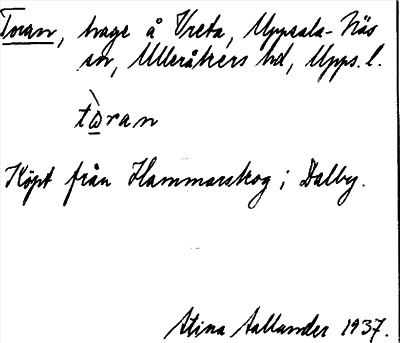 Toran, hage å Vreta, Uppsala-Näs
sn, Ulleråkers hd, Upps. l.
tòran
Köpt från Hammarskog i Dalby.
Stina Aallander 1937.